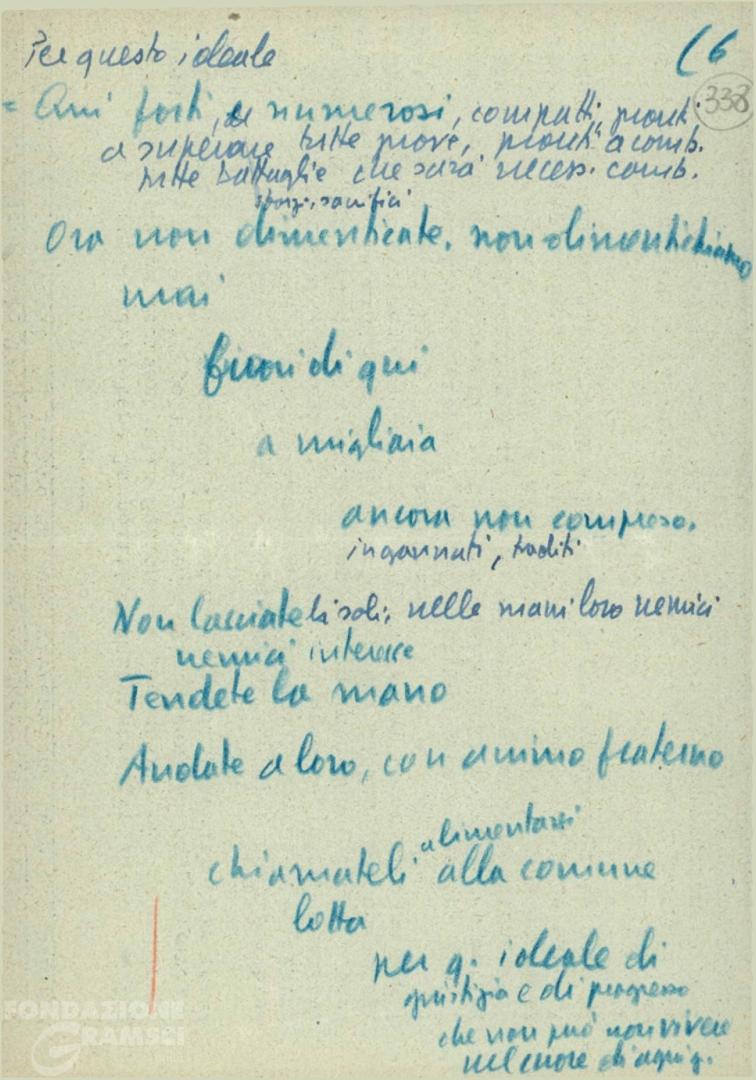 Per questo ideale
(6
338
= Qui forti, e numerosi, compatti, pronti
a superare tutte prove, pronti a comb.
tutte battaglie che sarà necess. comb.
sforzi, sacrifici
Ora non dimenticate, non dimentichiamo
mai
fuori di qui
a migliaia
ancora non compreso.
ingannati, traditi
Non lasciateli soli, nelle mani loro nemici
nemici interesse
Tendete la mano
Andate a loro, con animo fraterno
alimentarsi
chiamateli alla comune
lotta
per q. ideale di
giustizia e di progresso
che non può non vivere
nel cuore di ogni g.
FONDAZIONE
GRAMSCI